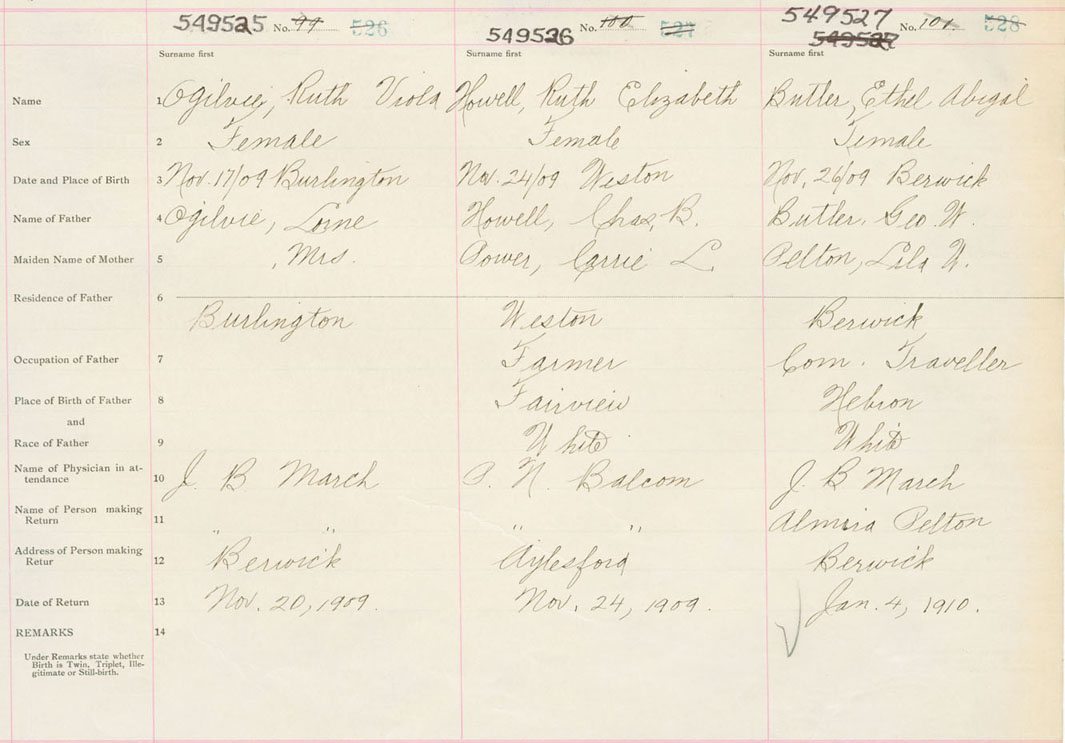 549525 No. 99 526 549526 No. 100 527 549527 No. 101 528
549527
Surname first Surname first Surname first
Name 1 Ogilvie, Ruth Viola Howell, Ruth Elizabeth Butler, Ethel Abigal
Sex 2 Female Female Female
Date and Place of Birth 3 Nov. 17/09 Burlington Nov. 24/09 Weston Nov. 26/09 Berwick
Name of Father 4 Ogilvie, Lorne Howell, Chas. B. Butler, Geo. W.
Maiden Name of Mother 5 , Mrs. Power, Carrie L. Pelton, Lila W.
Residence of Father 6
Burlington Weston Berwick
Occupation of Father 7 Farmer Com. Traveller
Place of Birth of Father 8 Fairview Hebron
and
Race of Father 9 White White
Name of Physician in at-
tendance 10 J. B March P. N. Balcom J. B March
Name of Person making
Return 11 " " " " Almira Pelton
Address of Person making
Retur 12 Berwick Aylesford Berwick
Date of Return 13 Nov. 20, 1909. Nov. 24, 1909. Jan. 4, 1910.
REMARKS 14
Under Remarks state whether
Birth is Twin, Triplet, Ille-
gitimate or Still-birth.